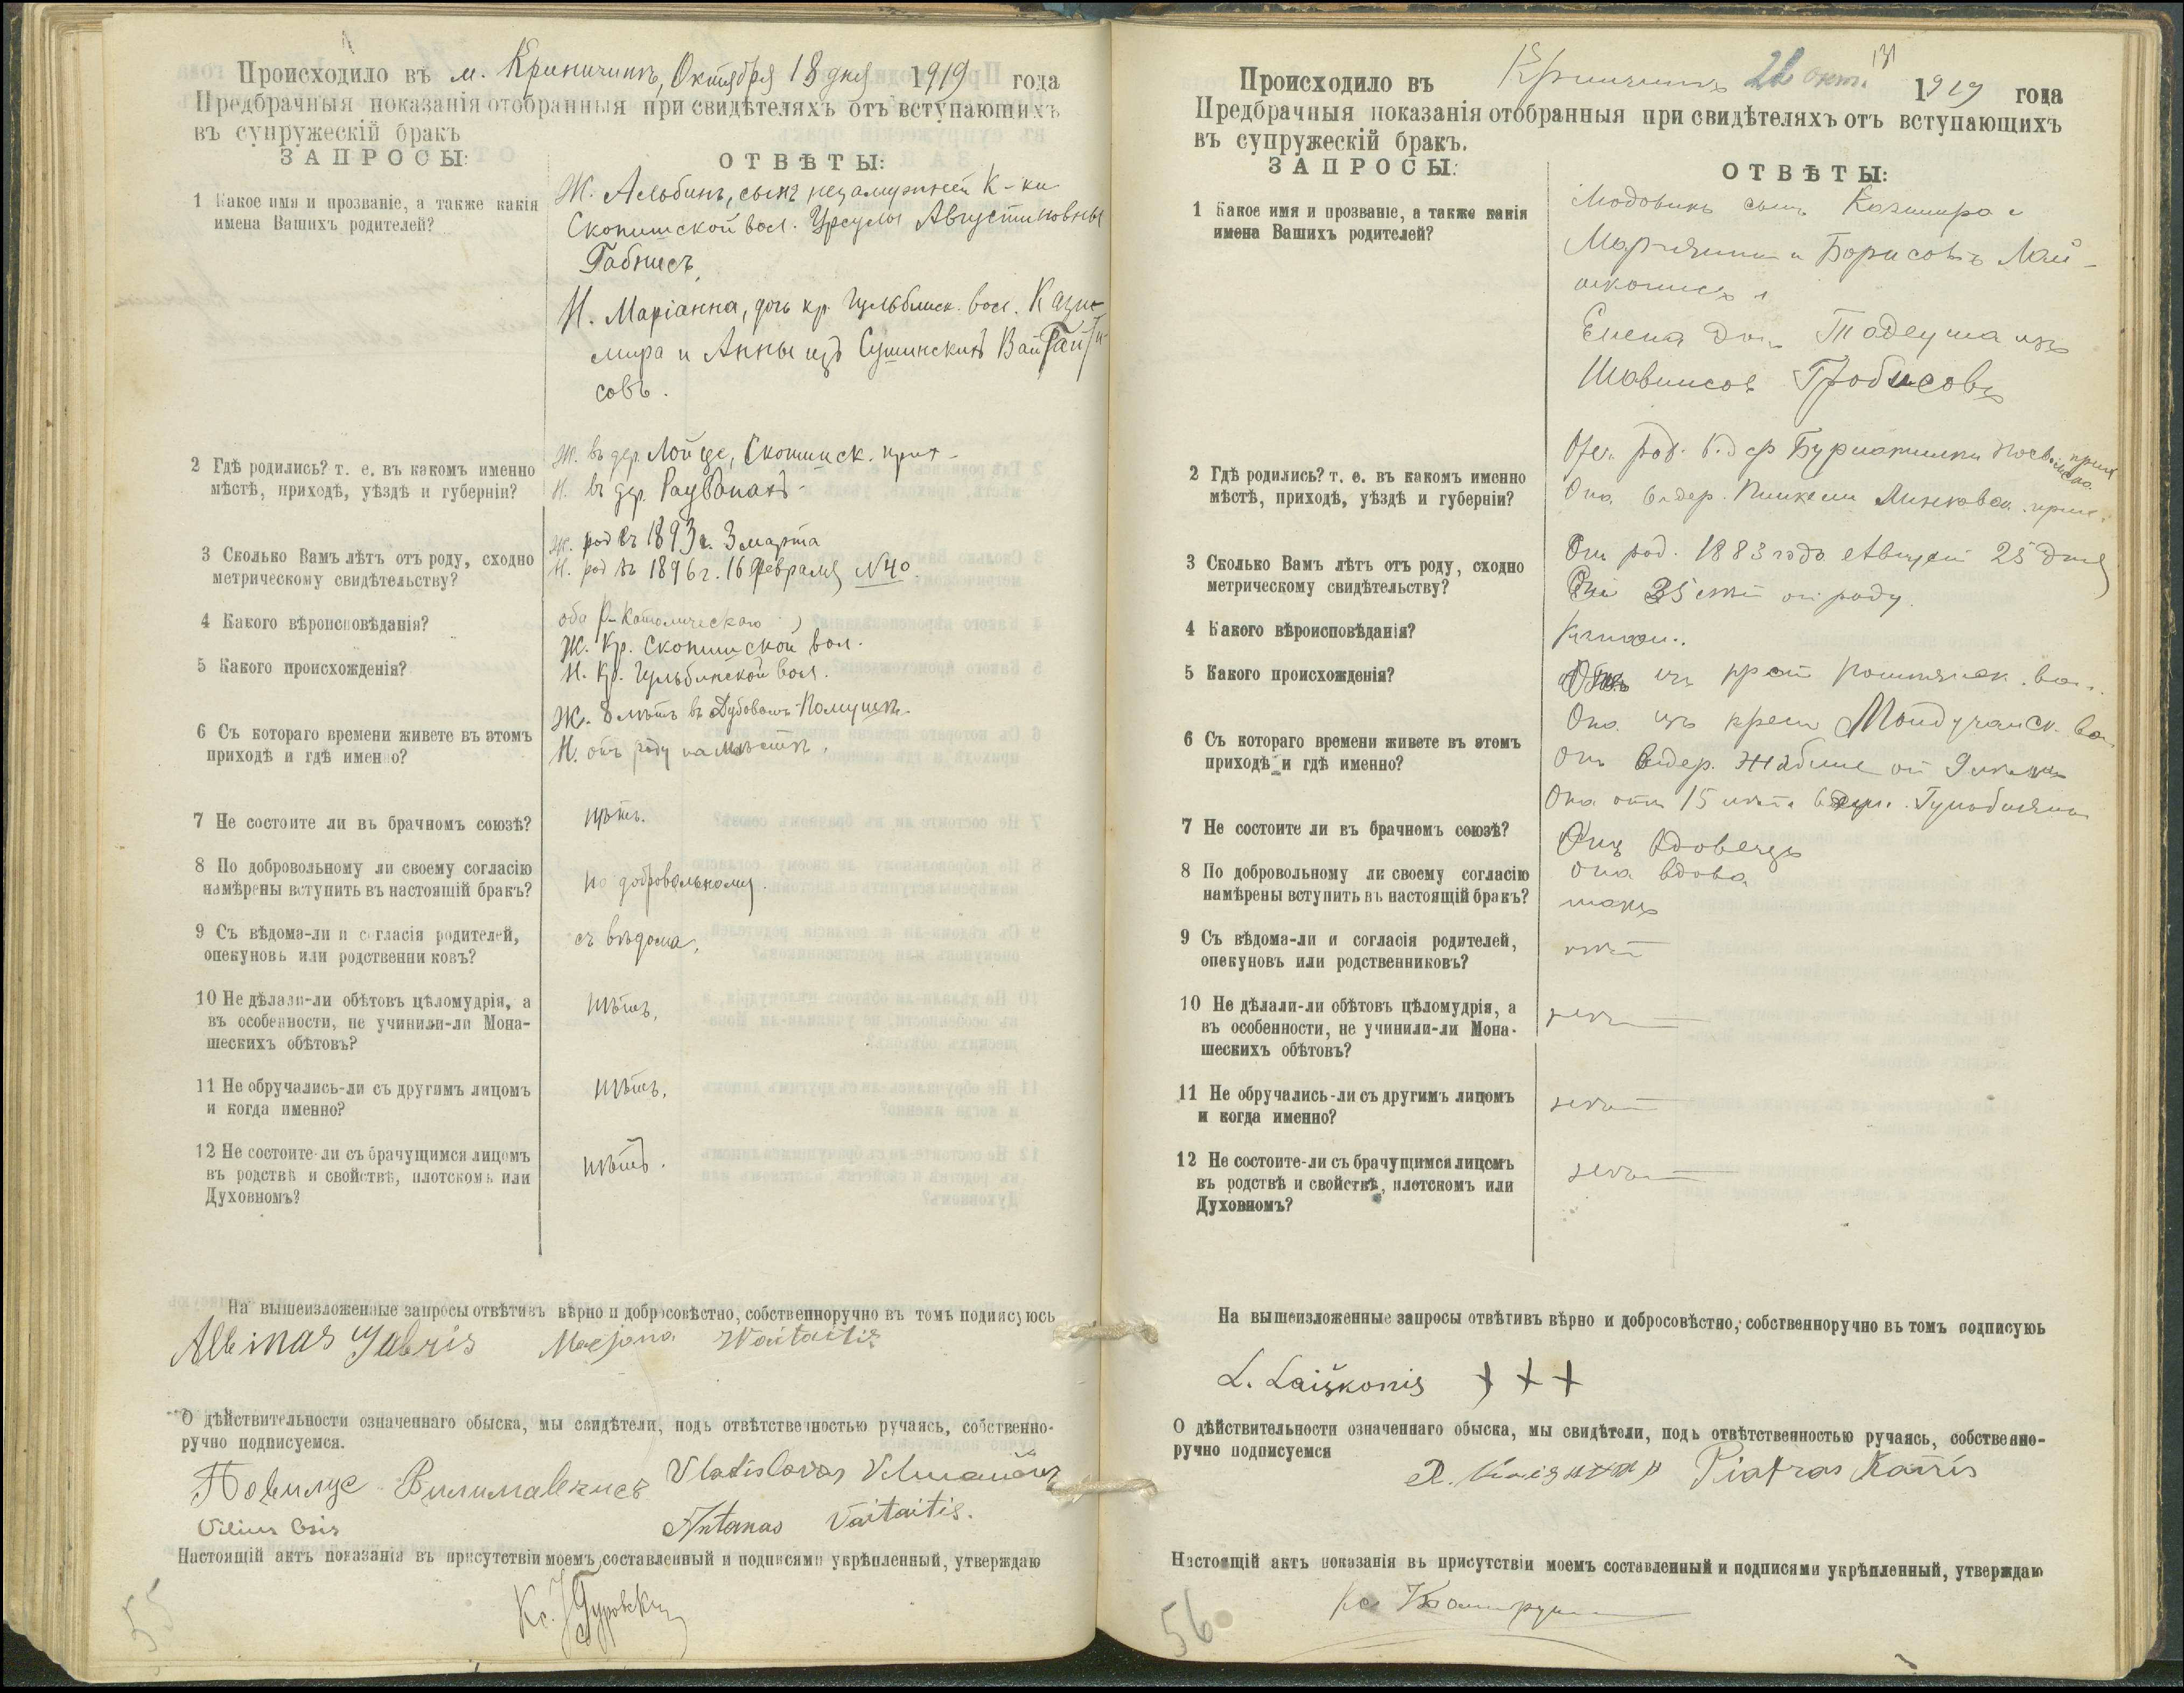 Происходило въ м. Криничинъ, Октября 18 дня 1919 года
Предбрачныя показанія отобранныя при свидѣтеляхъ отъ вступающихъ
въ супружескій бракъ
ЗАПРОСЫ:
ОТВѢТЫ:
1 Какое имя и прозваніе, а также какія
имена Вашихъ родителей?
Ж. Альбинъ, сынъ незамужней К-ки
Скопишской вол. Урсулы Августиновны
Габрисъ,
Н. Маріанна, дочь кр. Гульбинск. вол. Кази-
мира и Анны изъ Сушинскихъ Вайтайти-
совъ.
2 Гдѣ родились? т. е. въ какомъ именно
мѣстѣ, приходѣ, уѣздѣ и губерніи?
Ж. въ дер. Лойце, Скопишск. прих-
Н. въ дер.
3 Сколько Вамъ лѣтъ отъ роду, сходно
метрическому свидѣтельству?
Ж. род въ 1893 г. 3 марта
Н. род въ 1896 г. 16 февраля N 40.
4 Какого вѣроисповѣданія?
оба Р-Католическаго
5 Какого происхожденія?
Ж. Кр. Скопишской вол.
Н. Кр. Гульбинской вол.
6 Съ котораго времени живете въ этомъ
приходѣ и гдѣ именно?
Ж. 8 лѣтъ въ Дубовомъ-Помушѣ.
Н. отъ роду на мѣстѣ.
7 Не состоите ли въ брачномъ союзѣ?
нѣтъ.
8 По добровольному ли своему согласію
намѣрены вступить въ настоящій бракъ?
по добровольному.
9 Съ вѣдома-ли и согласія родителей,
опекуновъ или родственниковъ?
съ вѣдома,
10 Не дѣлали-ли обѣтовъ цѣломудрія, а
въ особенности, не учинили-ли Мона-
шескихъ обѣтовъ?
нѣтъ,
11 Не обручались-ли съ другимъ лицомъ
и когда именно?
нѣтъ,
12 Не состоите-ли съ брачущимся лицомъ
въ родствѣ и свойствѣ, плотскомъ или
Духовномъ?
нѣтъ.
На вышеизложенные запросы отвѣтивъ вѣрно и добросовѣстно, собственноручно въ томъ подписуюсь
Albinas Gabris Marjona Waitaitis
О дѣйствительности означеннаго обыска, мы свидѣтели, подъ отвѣтственностью ручаясь, собственно-
ручно подписуемся.
Повилус Вилимавичусъ Vladislovas
Vilius Osis Antanas Vaitaitis.
Настоящій актъ показанія въ присутствіи моемъ составленный и подписями укрѣпленный, утверждаю
Кс. Гуровскій
55
131
Происходило въ Криничинъ 26 окт. 1919 года
Предбрачныя показанія отобранныя при свидѣтеляхъ отъ вступающихъ
въ супружескій бракъ.
ЗАПРОСЫ:
ОТВѢТЫ:
1 Какое имя и прозваніе, а также какія
имена Вашихъ родителей?
Людовикъ сынъ Казимира и
Марьянны и Борисовъ Лай-
шконисъ и
Елена дочь Тадеуша изъ
2 Гдѣ родились? т. е. въ какомъ именно
мѣстѣ, приходѣ, уѣздѣ и губерніи?
Она въ дер.
3 Сколько Вамъ лѣтъ отъ роду, сходно
метрическому свидѣтельству?
Онъ род. 1883 года Августа 25 дня
Она 35 лѣтъ отъ роду.
4 Какого вѣроисповѣданія?
5 Какого происхожденія?
Она изъ крест.
6 Съ котораго времени живете въ этомъ
приходѣ и гдѣ именно?
Онъ въ дер.
Она отъ 15 лѣтъ
7 Не состоите ли въ брачномъ союзѣ?
Онъ вдовецъ
она вдова
8 По добровольному ли своему согласію
намѣрены вступить въ настоящій бракъ?
такъ
9 Съ вѣдома-ли и согласія родителей,
опекуновъ или родственниковъ?
нѣтъ
10 Не дѣлали-ли обѣтовъ цѣломудрія, а
въ особенности, не учинили-ли Мона-
шескихъ обѣтовъ?
нѣтъ
11 Не обручались-ли съ другимъ лицомъ
и когда именно?
нѣтъ
12 Не состоите-ли съ брачущимся лицомъ
въ родствѣ и свойствѣ, плотскомъ или
Духовномъ?
нѣтъ
На вышеизложенные запросы отвѣтивъ вѣрно и добросовѣстно, собственноручно въ томъ подписуюь
L. Laiškonis + + +
О дѣйствительности означеннаго обыска, мы свидѣтели, подъ отвѣтственностью ручаясь, собственно-
ручно подписуемся
Piatras Katris
Настоящій актъ показанія въ присутствіи моемъ составленный и подписями укрѣпленный, утверждаю
Кс.
56